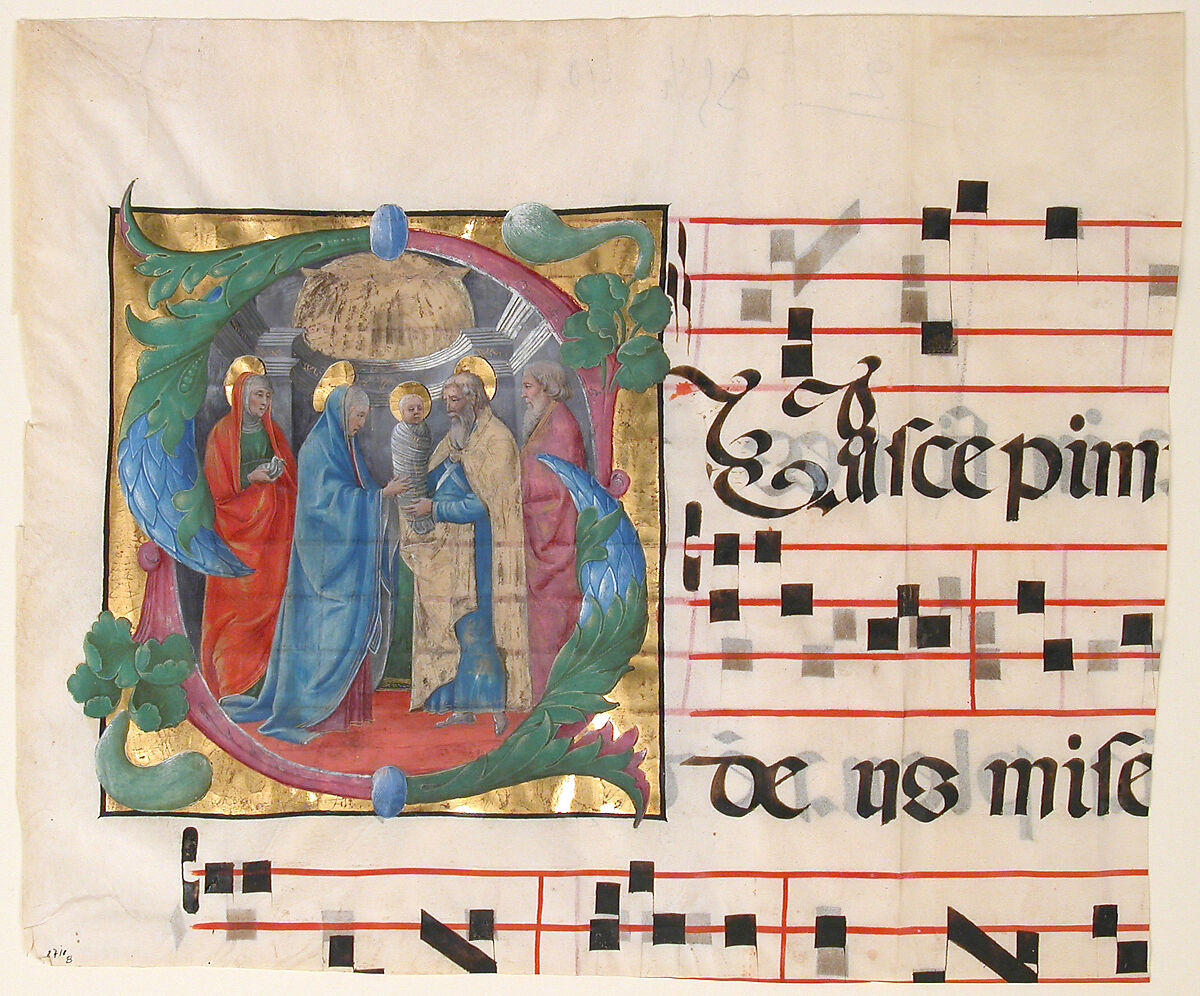 Suscepim
de us mise
2711
B